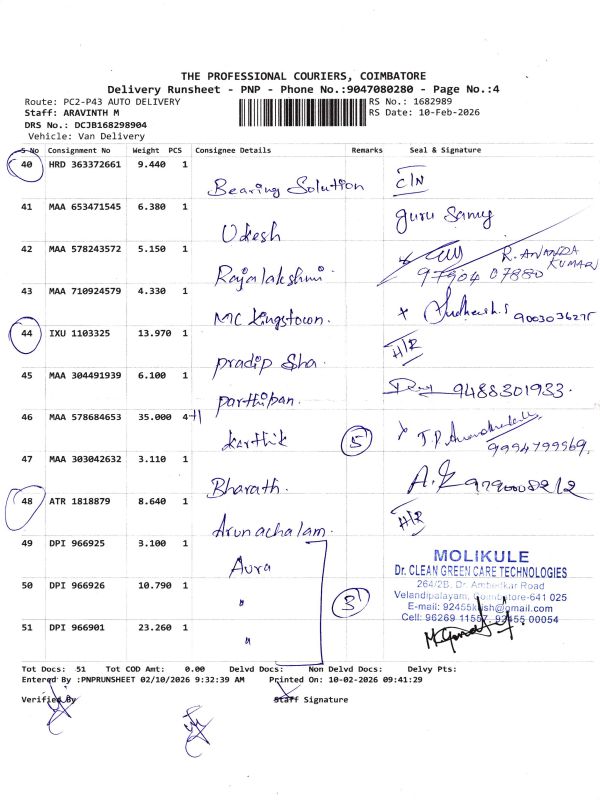 THE PROFESSIONAL COURIERS, COIMBATORE
Delivery Runsheet - PNP - Phone No.:9047080280 - Page No.:4
Route: PC2-P43 AUTO DELIVERY
RS No.: 1682989
Staff: ARAVINTH M
RS Date: 10-Feb-2026
DRS No.: DCJB168298904
Vehicle: Van Delivery
S No Consignment No Weight PCS Consignee Details Remarks Seal & Signature
40 HRD 363372661 9.440 1
Bearing Solution C/N
41 MAA 653471545 6.380 1
Udesh Guru Samy
42 MAA 578243572 5.150 1
Rajalakshmi. R. ANANDA KUMAR
97904 07880
43 MAA 710924579 4.330 1
MC Kingstown. 9003036275
44 IXU 1103325 13.970 1
Pradip Sha. H/R
45 MAA 304491939 6.100 1
Parthipan. 9488301933.
46 MAA 578684653 35.000 4+1
Karthik 5 9994799969.
47 MAA 303042632 3.110 1
Bharath.
48 ATR 1818879 8.640 1
Arunachalam. H/R
49 DPI 966925 3.100 1
Aura
50 DPI 966926 10.790 1
" 3
51 DPI 966901 23.260 1
"
MOLIKULE
Dr. CLEAN GREEN CARE TECHNOLOGIES
264/2B, Dr. Ambedkar Road
Velandipalayam, Coimbatore-641 025
Cell: 96269 11557, 92455 00054
Tot Docs: 51 Tot COD Amt: 0.00 Delvd Docs: Non Delvd Docs: Delvy Pts:
Entered By :PNPRUNSHEET 02/10/2026 9:32:39 AM Printed On: 10-02-2026 09:41:29
Verified By Staff Signature